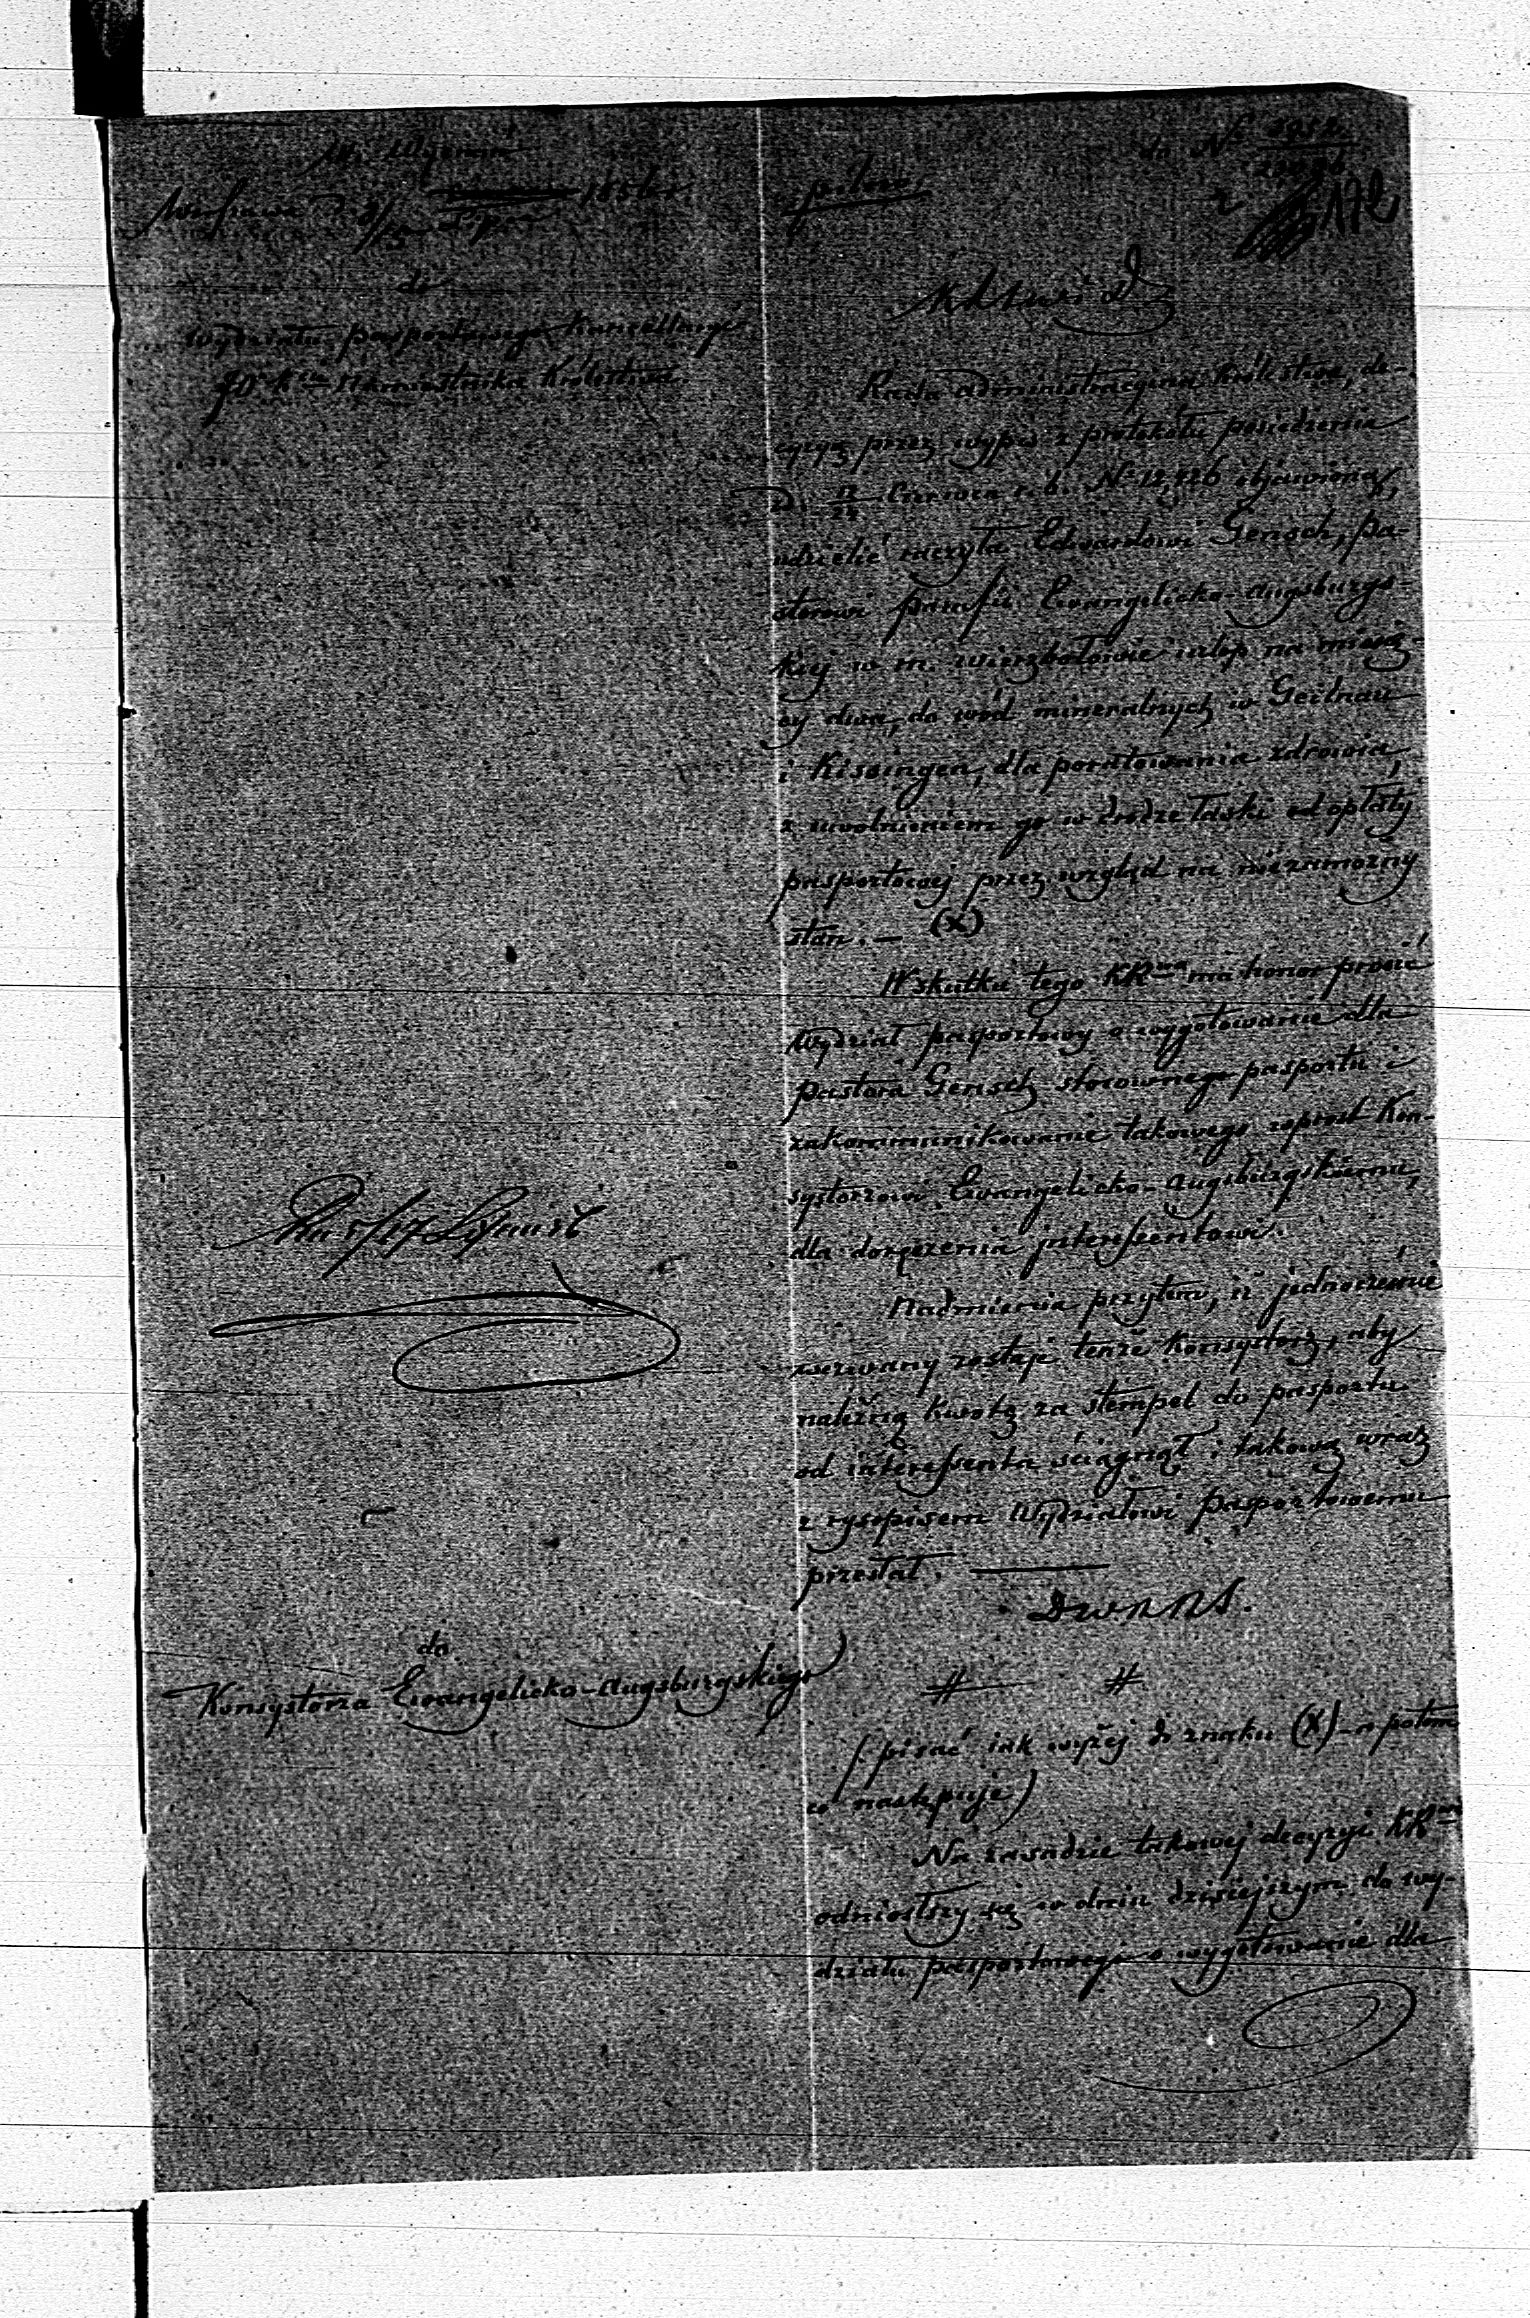 Warszawa d. 3/15 Lipca 1856 r.
do
Wydziału pasportowego Kancellaryi
JO Kcia Namiestnika Królestwa.
pilno
do N.
172
Rada administracyjna Królestwa, de-
cyzyą przez wypis z protokółu posiedzenia
d. 12/24 Czerwca r. b. N. 12,226 objawioną,
udzielić raczyła Edwardowi Gensch, pa-
storowi parafii Ewangelicko-Augsburgs-
kiej w m. Wierzbołowie urlop na miesią-
cy dwa, do wód mineralnych w Geilnau
i Kissingen, dla poratowania zdrowia,
z uwolnieniem go w drodze łaski od opłaty
pasportowej przez wzgląd na niezamożny
stan. — (X)
W skutku tego KRwa ma honor prosić
Wydział pasportowy o wygotowanie dla
pastora Gensch stosownego pasportu i
zakommunikowanie takowego wprost Kon-
systorzowi Ewangelicko-Augsburgskiemu,
dla doręczenia interessentowi.
Nadmienia przytem, iż jednocześnie
wezwany zostaje tenże Konsystorz, aby
należną kwotę za stempel do pasportu
od interessenta ściągnął i takową wraz
z rysopisem Wydziałowi Pasportowemu
przesłał. —
do
Konsystorza Ewangelicko-Augsburgskiego
# #
(pisać jak wyżej do znaku (X) – a potem
co następuje)
Na zasadzie takowej decyzyi KRwa
odniosłszy się w dniu dzisiejszym do wy-
działu pasportowego o wygotowanie dla